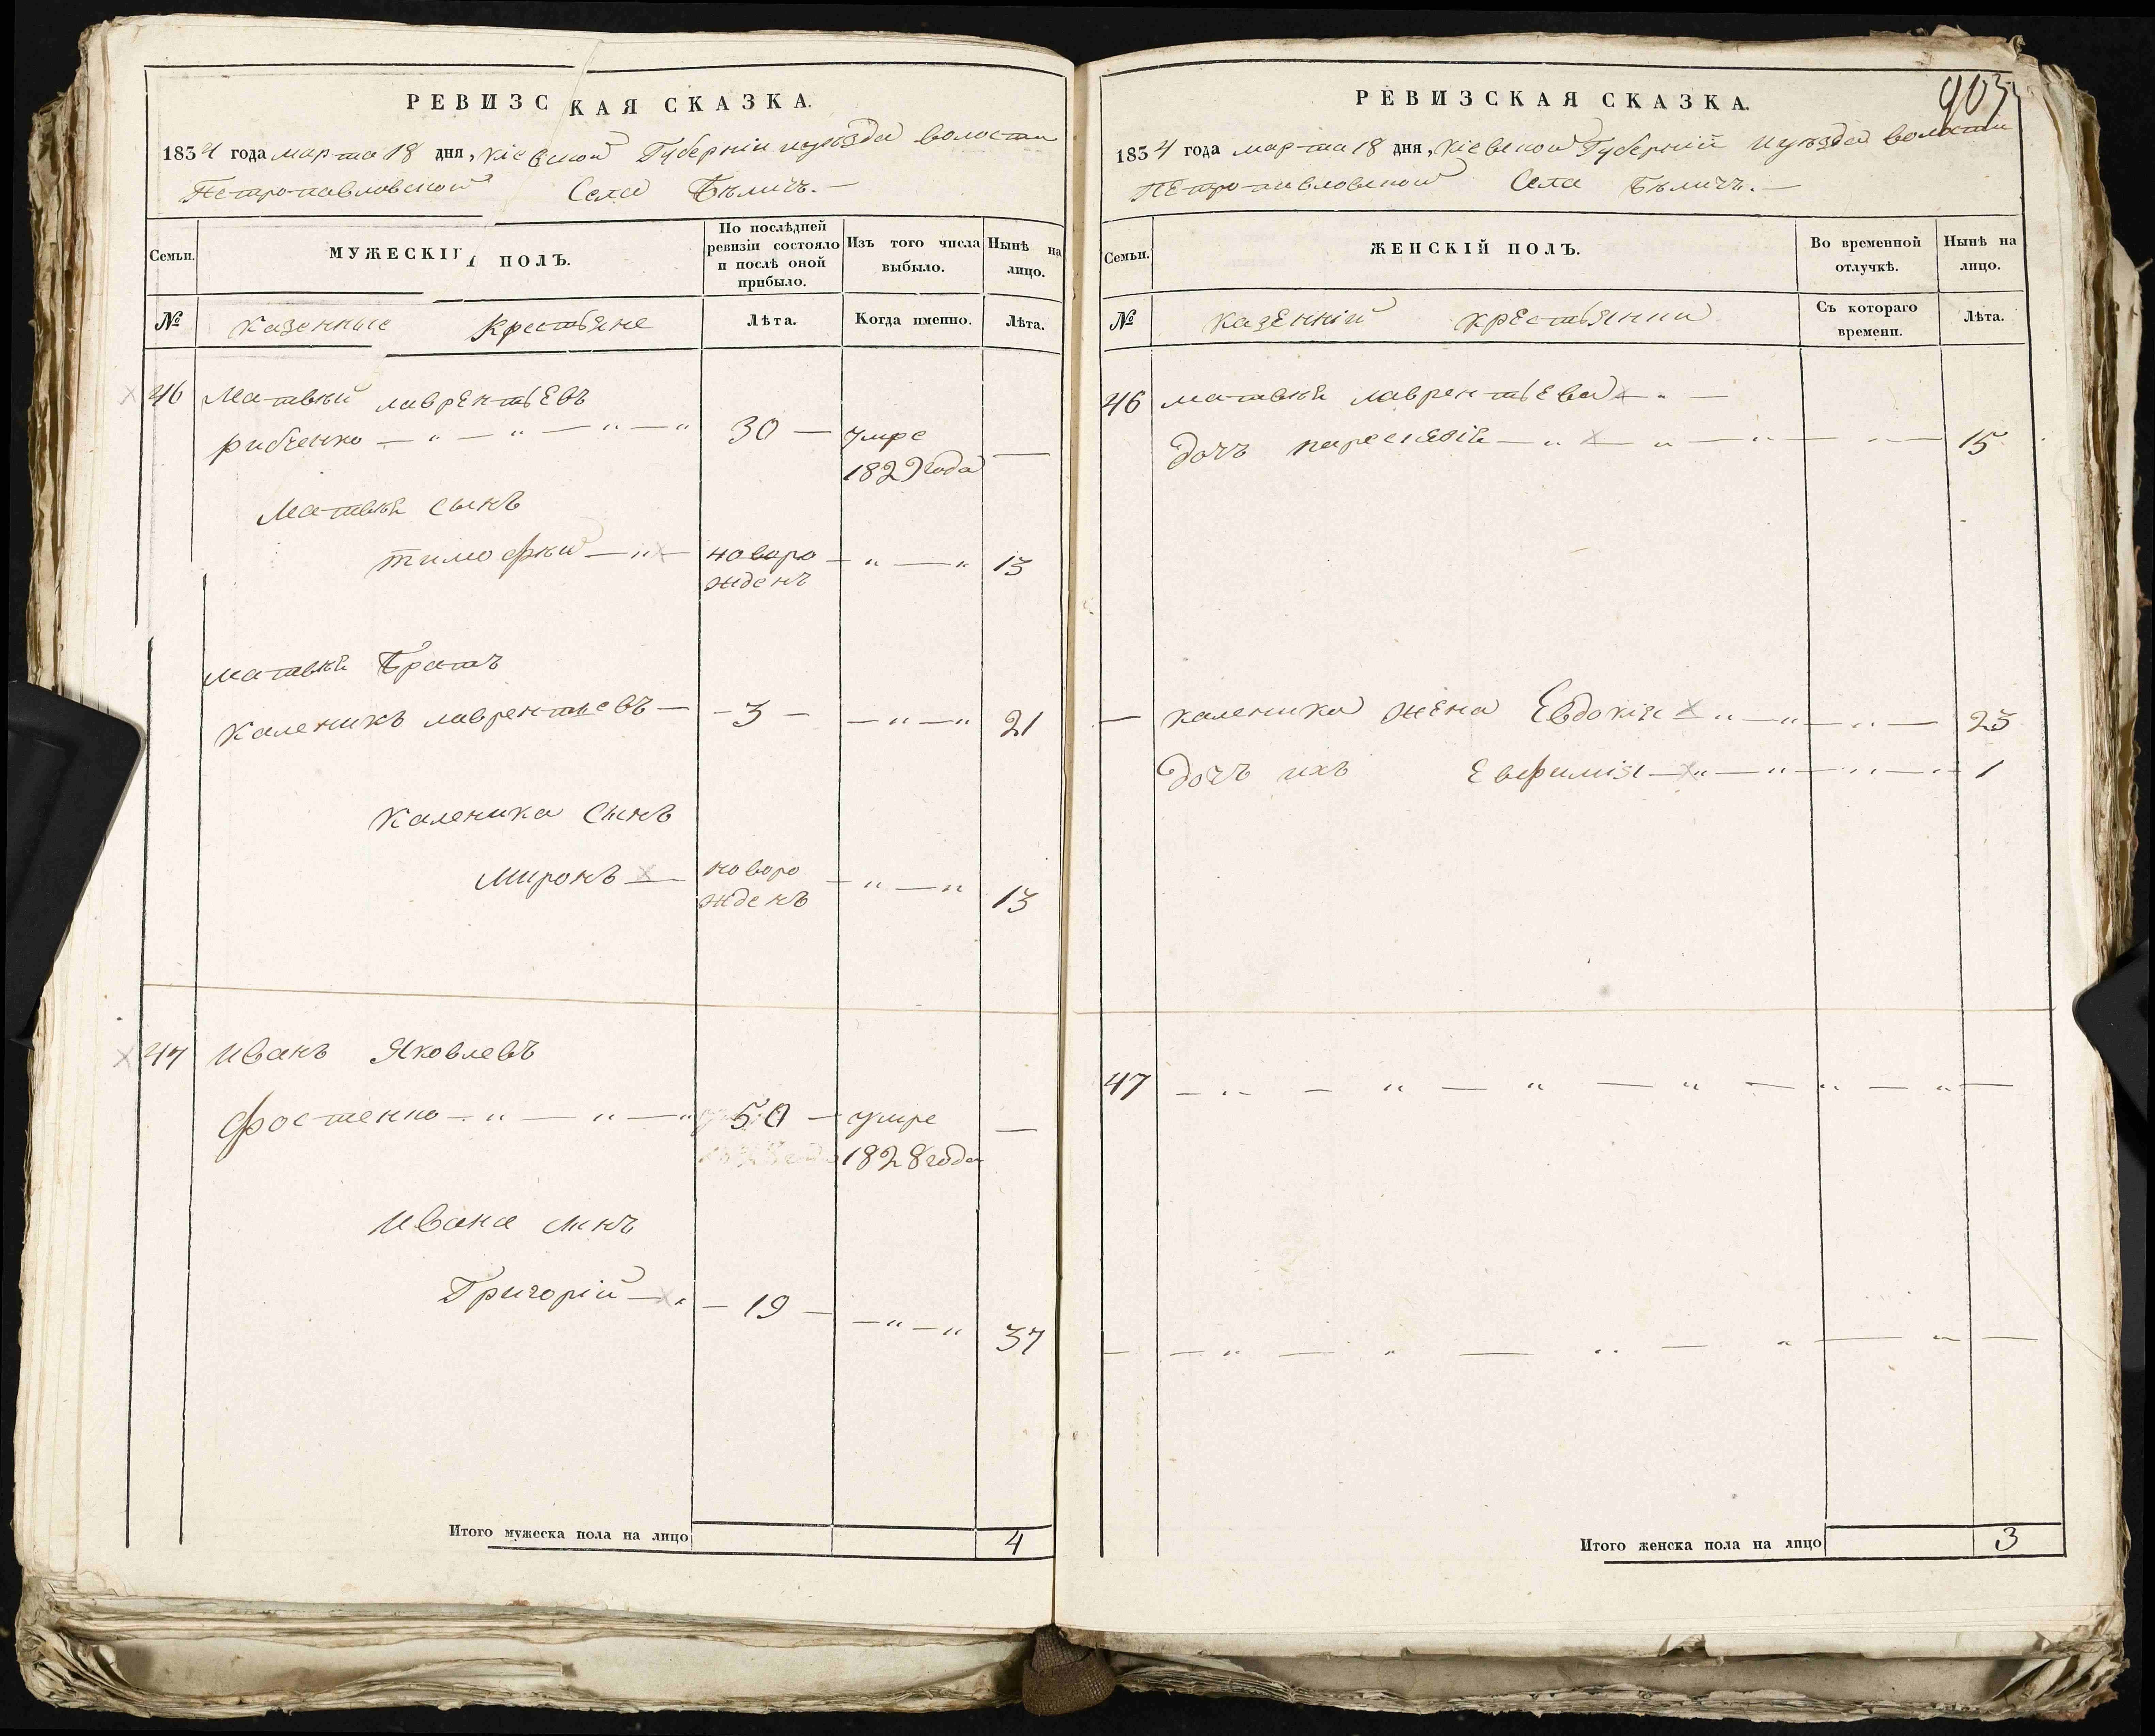 РЕВИЗСКАЯ СКАЗКА.
1834 года марта 18 дня, Кіевской Губерніи и уѣзда волости
Петропавловской Села Бѣличъ.—
Семьи.
МУЖЕСКІЙ ПОЛЪ.
По послѣдней ревизіи состояло и послѣ оной прибыло.
Изъ того числа выбыло.
Нынѣ на лицо.
№
Казенные Крестьяне
Лѣта.
Когда именно.
Лѣта.
46 Матвѣй лаврентьевъ
рибченко — " — " — " — " 30 — умре —
1829 года
Матвѣя сынъ
тимофѣй — " — новоро — " — " 13
жденъ
матвѣя братъ
Каленикъ лаврентьевъ — - 3 - — " — " 21
Каленика сынъ
Миронъ — новоро — " — " 13
жденъ
47 Иванъ Яковлевъ
фостенко — " — " — " 50 — умре —
1828 года
Ивана сынъ
Григорій — " — 19 — — " — " 37
Итого мужеска пола на лицо 4
903
РЕВИЗСКАЯ СКАЗКА.
1834 года марта 18 дня, Кіевской Губерніи и уѣзда волости
Петропавловской Села Бѣличъ.—
Семьи.
ЖЕНСКІЙ ПОЛЪ.
Во временной отлучкѣ.
Нынѣ на лицо.
№
Казенніи крестьянки
Съ котораго времени.
Лѣта.
46 матвѣя лаврентьева — " —
дочъ параскѣвія — " — " — " — " — 15
— каленика жена Евдокія — " — " — " — 23
дочъ ихъ Евфимія — " — " — " — 1
47 — " — " — " — " — " — " —
— — " — " — " — " — " —
Итого женска пола на лицо 3